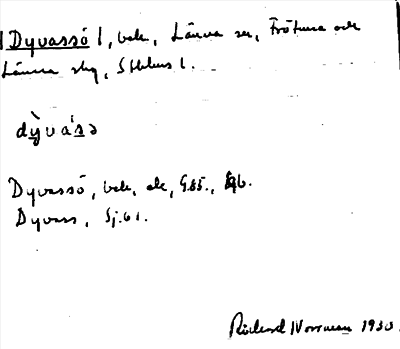 Dyvassö, vek, Länna sn, Frötuna och
Länna skg, Sthlms l.
dỳvás̲ə
Dyvassö, vek, ek, G.85.
Dyvass, Sj.61.
Rickard Norrman 1930.